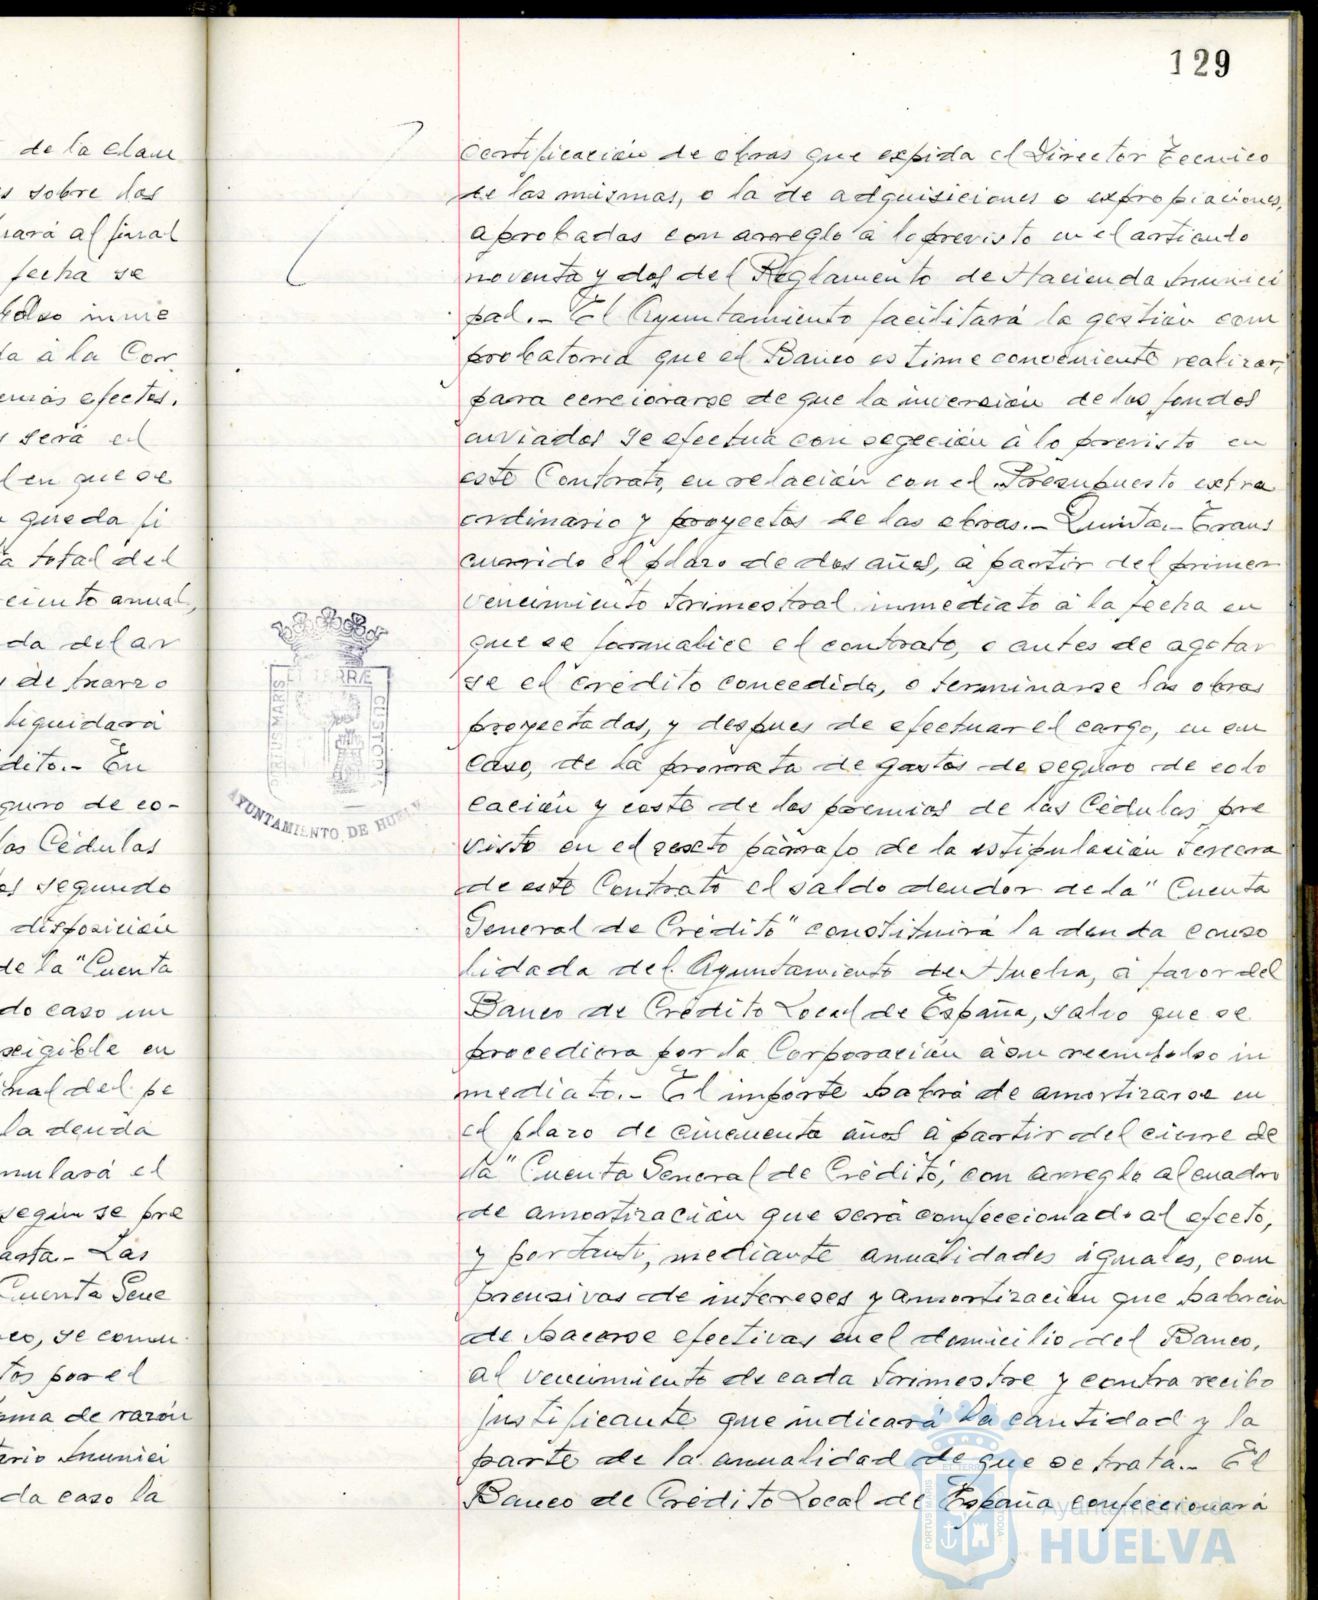 129
de la clau
s sobre los
nará al final
fecha se
bolso inme
da à la Cor
emás efectos.
s será el
l en que se
queda fi
a total del
ciento anual,
da del ar
de marzo
liquidará
dito.- En
guro de co-
las Cédulas
os segundo
disposición
de la "Cuenta
do caso un
exigible en
inal del pe
la deuda
mulará el
según se pre
arta.- Las
Cuenta Gene
co, se comu
tos por el
oma de razón
ario munici
da caso la
certificación de obras que expida el Director Tecnico
de las mismas, o la de adquisiciones o expropiaciones,
aprobadas con arreglo à lo previsto en el articulo
noventa y dos del Reglamento de Hacienda munici
pal.- El Ayuntamiento facilitará la gestión com
probatoria que el Banco estime conveniente realizar,
para cerciorarse de que la inversión de los fondos
enviados se efectua con segeción à lo previsto en
este Contrato, en relación con el Presupuesto extra
ordinario y proyectos de las obras.- Quinta.- Trans
currido el plazo de dos años, à partir del primer
vencimiento trimestral inmediato à la fecha en
que se formalice el contrato, o antes de agotar
se el crédito concedido, o terminarse las obras
proyectadas, y despues de efectuar el cargo, en su
caso, de la prorrata de gastos de seguro de colo
cación y coste de los premios de las Cédulas pre
visto en el sexto párrafo de la estipulación tercera
de este Contrato el saldo deudor de la "Cuenta
General de Crédito" constituirá la deuda conso
lidada del Ayuntamiento de Huelva, à favor del
Banco de Crédito Local de España, salvo que se
procediera por la Corporación à su reembolso in
mediato.- El importe habrá de amortizarse en
el plazo de cincuenta años à partir del cierre de
la "Cuenta General de Crédito", con arreglo al cuadro
de amortización que será confeccionado al efecto,
y por tanto, mediante anualidades iguales, com
prensivas de intereses y amortización que habrán
de hacerse efectivas en el domicilio del Banco,
al vencimiento de cada trimestre y contra recibo
justificante que indicará la cantidad y la
parte de la anualidad de que se trata.- El
Banco de Crédito Local de España confeccionará
PORTUS MARIS
ET TERRÆ
CUSTODIA
AYUNTAMIENTO DE HUELVA
PORTUS MARIS
ET TERRÆ
CUSTODIA
Ayuntamiento de
HUELVA